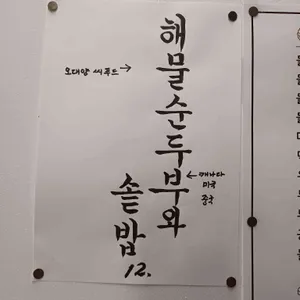 해물순두부와
솥밥
12.
오대양 씨푸드→
←캐나다
미국
중국